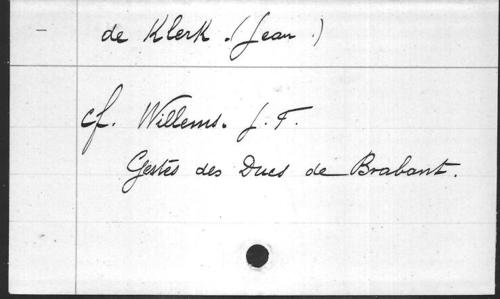 — de Klerk. (Jean.)
cf. Willems. J. F.
Gestes des Ducs de Brabant.